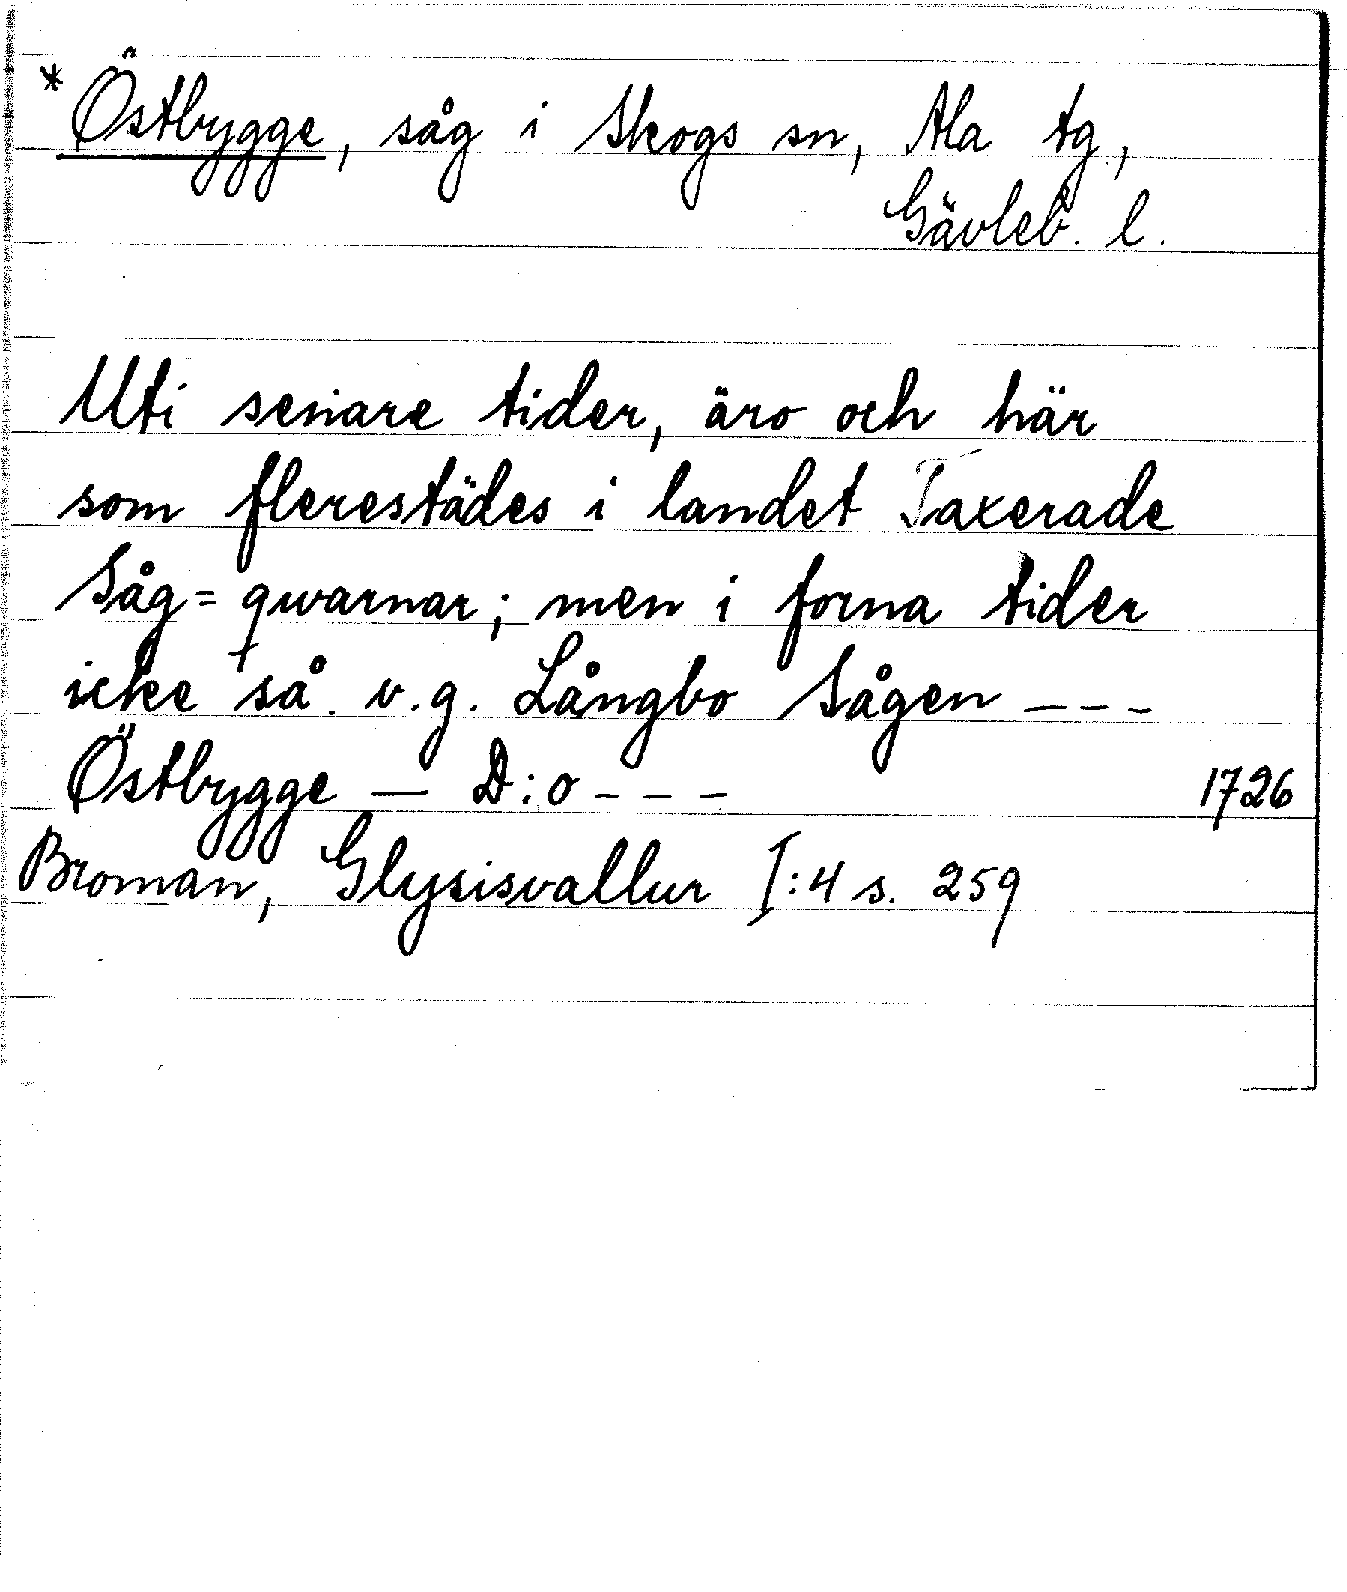 * Östbygge, såg i Skogs sn, Ala tg.,
Gävleb. l.
Uti senare tider, äro och här
som flerestädes i landet Taxerade
Såg= qwarnar; men i forna tider
icke så. v.g. Långbo Sågen ---
Östbygge — D:o --- 1726
Broman, Glysisvallur I:4 s. 259